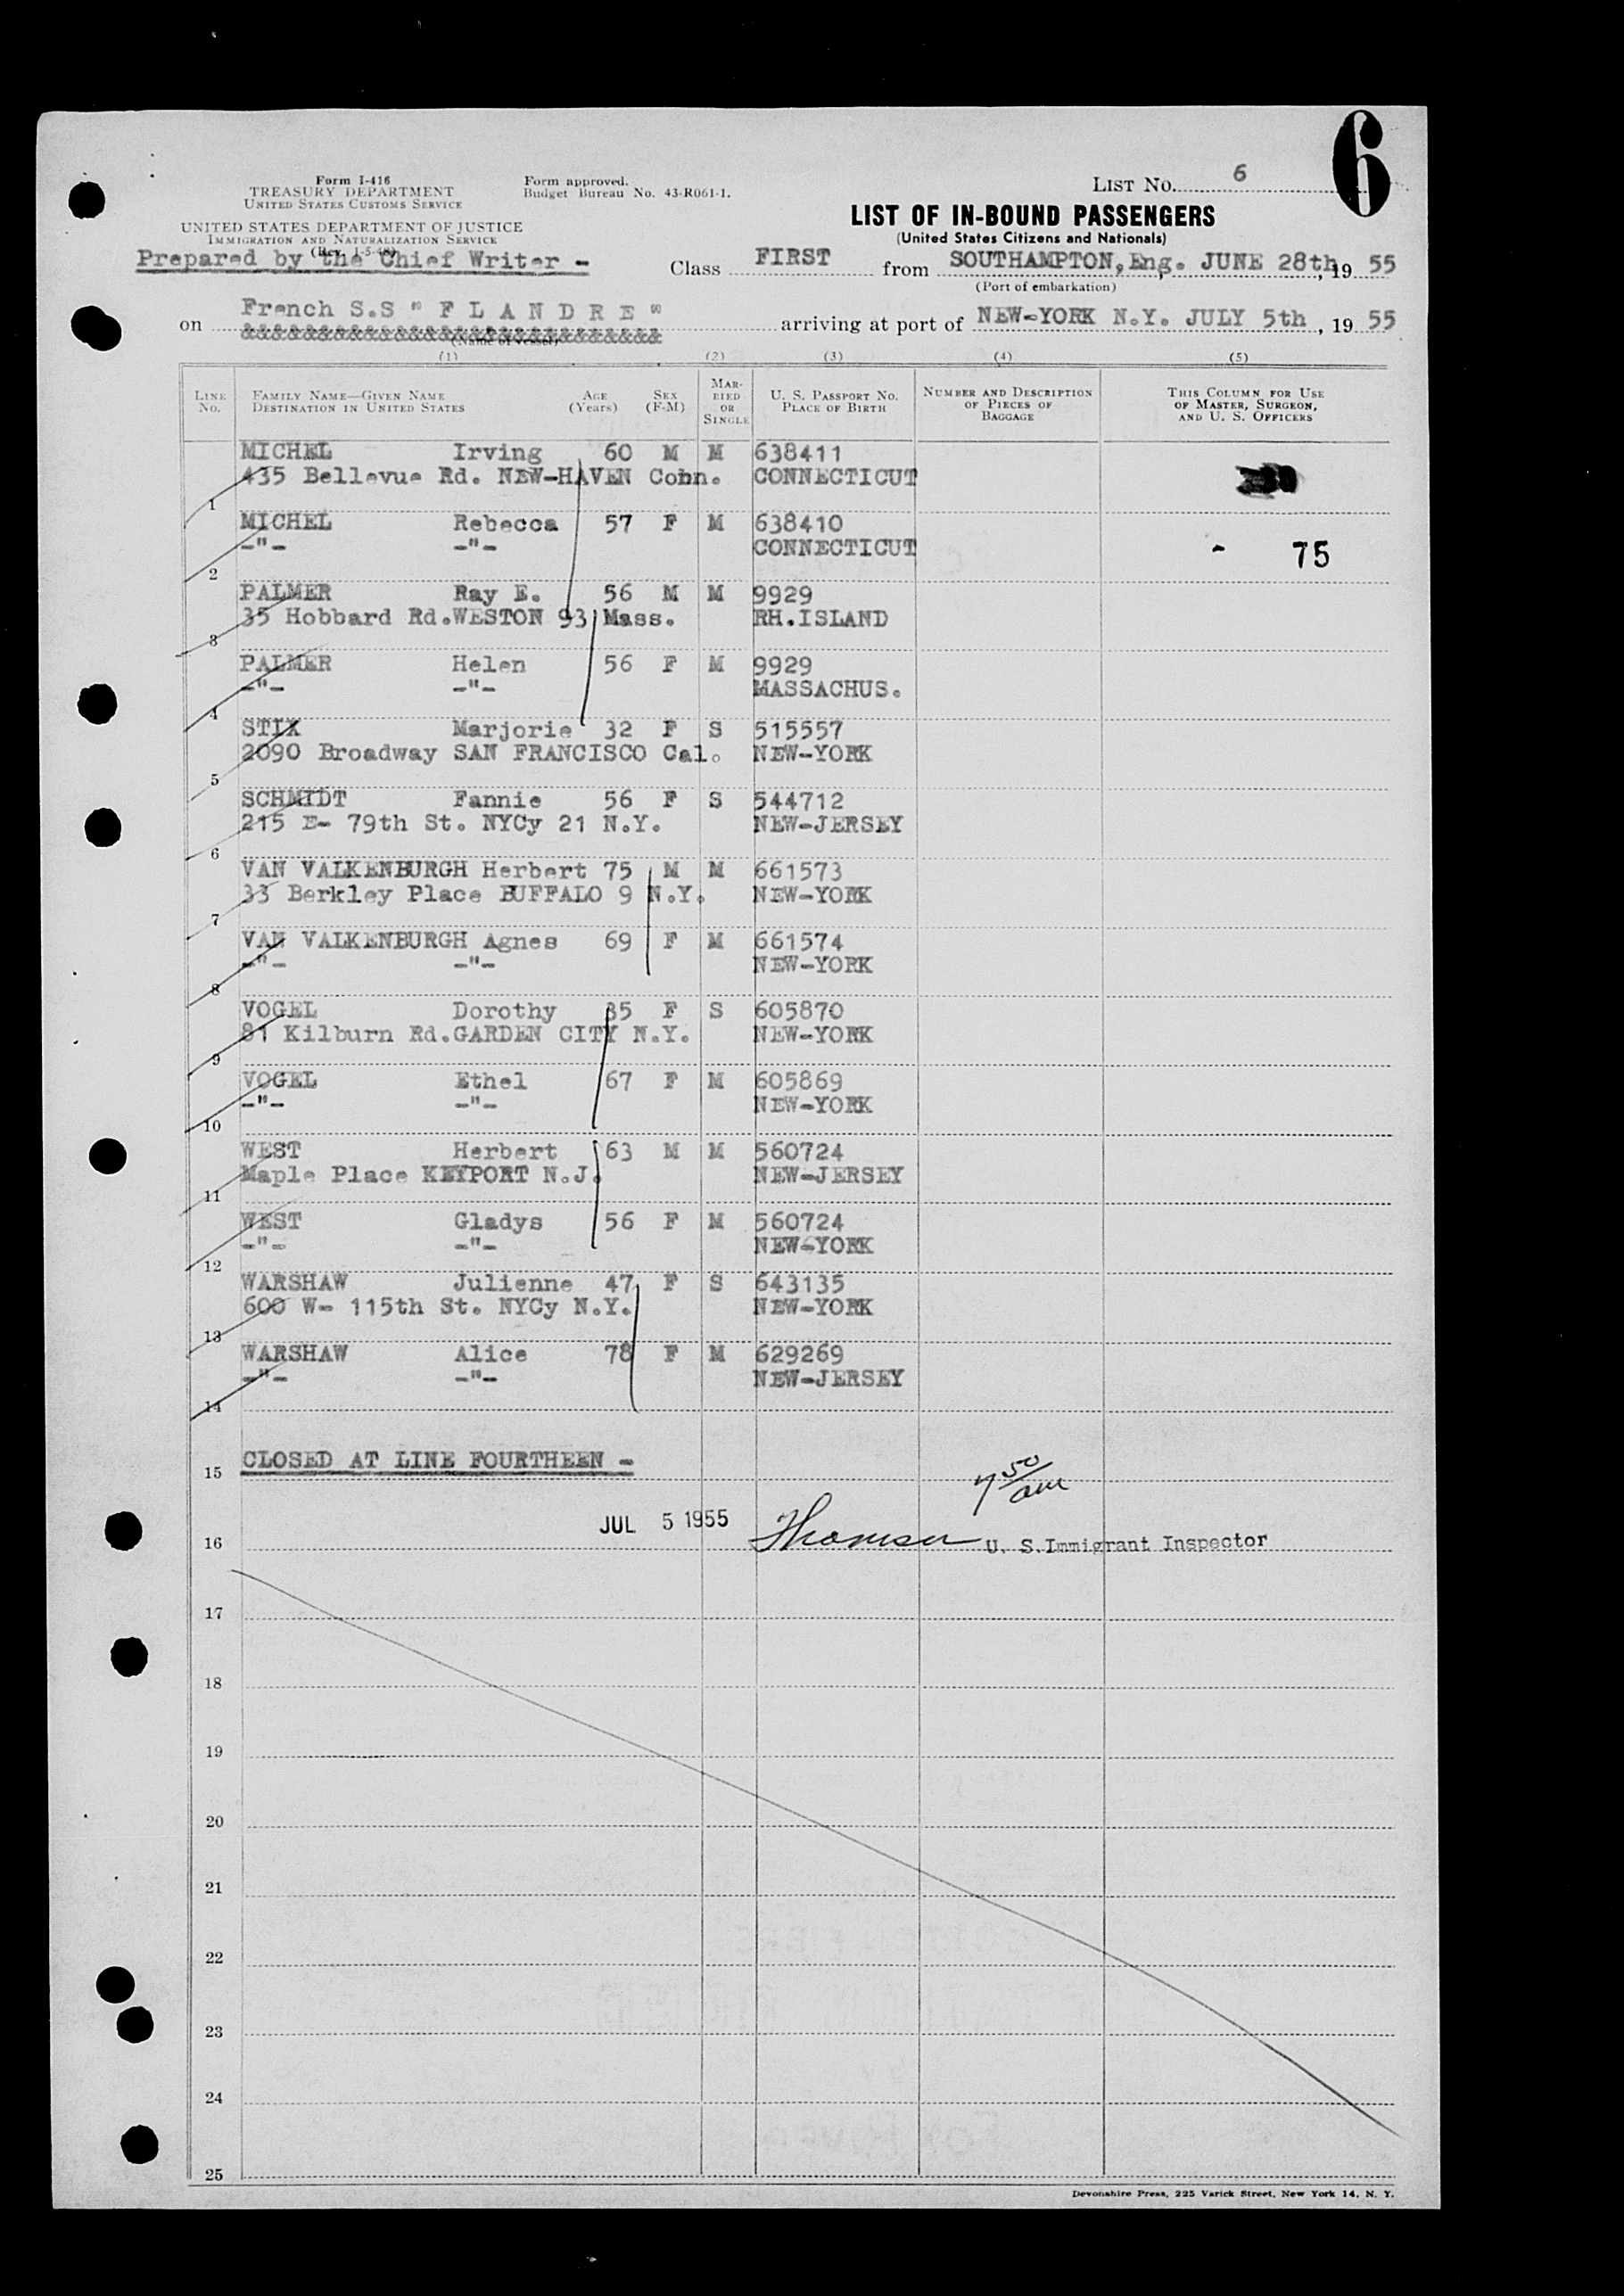 6
Form I-416
TREASURY DEPARTMENT
UNITED STATES CUSTOMS SERVICE
Form approved.
Budget Bureau No. 43-R061-1.
LIST No. 6
UNITED STATES DEPARTMENT OF JUSTICE
IMMIGRATION AND NATURALIZATION SERVICE
(Rev. 1-5-48)
LIST OF IN-BOUND PASSENGERS
(United States Citizens and Nationals)
Prepared by the Chief Writer -
Class FIRST from SOUTHAMPTON, Eng. JUNE 28th, 19 55
(Port of embarkation)
on French S.S " F L A N D R E " arriving at port of NEW-YORK N.Y. JULY 5th, 19 55
&&&&&&&&&&&&&&&&&&&&&&&&&&&&
(Name of vessel)
(1) (2) (3) (4) (5)
LINE No. FAMILY NAME—GIVEN NAME DESTINATION IN UNITED STATES AGE (Years) SEX (F-M) MARRIED OR SINGLE U. S. PASSPORT No. PLACE OF BIRTH NUMBER AND DESCRIPTION OF PIECES OF BAGGAGE THIS COLUMN FOR USE OF MASTER, SURGEON, AND U. S. OFFICERS
MICHEL Irving 60 M M 638411
1 435 Bellevue Rd. NEW-HAVEN Conn. CONNECTICUT
MICHEL Rebecca 57 F M 638410
2 -"- -"- CONNECTICUT - 75
PALMER Ray E. 56 M M 9929
3 35 Hobbard Rd.WESTON 93 Mass. RH.ISLAND
PALMER Helen 56 F M 9929
4 -"- -"- MASSACHUS.
STIX Marjorie 32 F S 515557
5 2090 Broadway SAN FRANCISCO Cal. NEW-YORK
SCHMIDT Fannie 56 F S 544712
6 215 E- 79th St. NYCy 21 N.Y. NEW-JERSEY
VAN VALKENBURGH Herbert 75 M M 661573
7 33 Berkley Place BUFFALO 9 N.Y. NEW-YORK
VAN VALKENBURGH Agnes 69 F M 661574
8 -"- -"- NEW-YORK
VOGEL Dorothy 35 F S 605870
9 81 Kilburn Rd.GARDEN CITY N.Y. NEW-YORK
VOGEL Ethel 67 F M 605869
10 -"- -"- NEW-YORK
WEST Herbert 63 M M 560724
11 Maple Place KEYPORT N.J. NEW-JERSEY
WEST Gladys 56 F M 560724
12 -"- -"- NEW-YORK
WARSHAW Julienne 47 F S 643135
13 600 W- 115th St. NYCy N.Y. NEW-YORK
WARSHAW Alice 78 F M 629269
14 -"- -"- NEW-JERSEY
15 CLOSED AT LINE FOURTHEEN -
7 50 am
16 JUL 5 1955 Thomsen U. S.Immigrant Inspector
17
18
19
20
21
22
23
24
25
Devonshire Press, 225 Varick Street, New York 14, N. Y.